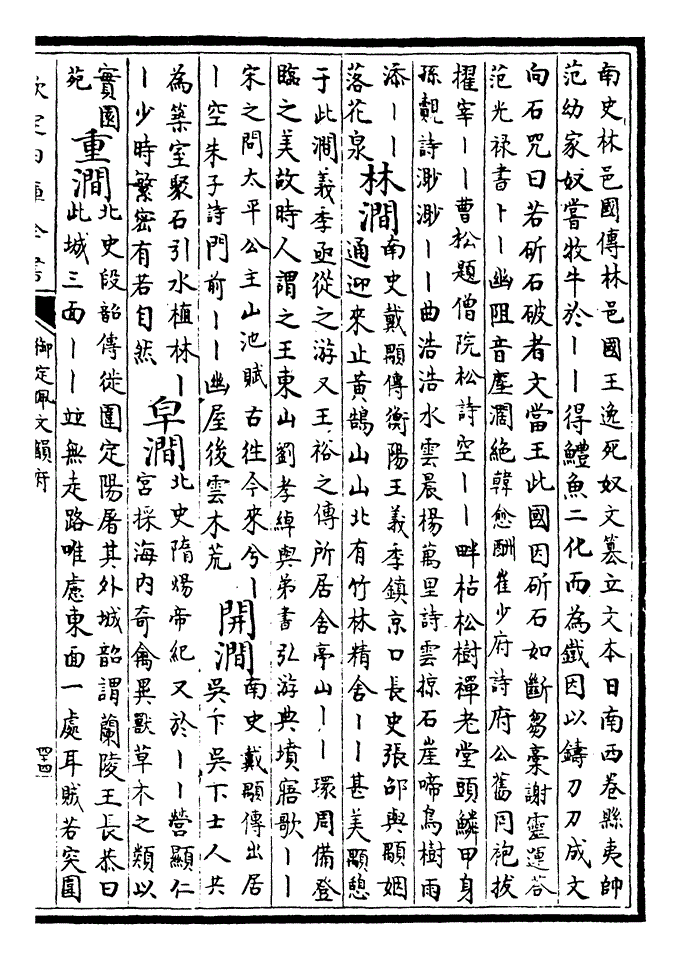 南史林邑國傳林邑國王逸死奴文篡立文本日南西卷縣夷帥
范幼家奴嘗牧牛於丨丨得鱧魚二化而為鐵因以鑄刀刀成文
向石咒曰若斫石破者文當王此國因斫石如斷芻藁謝靈運答
范光禄書卜丨幽阻音塵濶絶韓愈酬崔少府詩府公舊同袍拔
擢宰丨丨曹松題僧院松詩空丨丨畔枯松樹禪老堂頭鱗甲身
孫覿詩渺渺丨丨曲浩浩水雲晨楊萬里詩雲掠石崖啼鳥樹雨
添丨丨
落花泉
林澗
南史戴顒傳衡陽王義季鎮京口長史張邵與顒姻
通迎來止黄鵠山山北有竹林精舍丨丨甚美顒憩
于此澗義季亟從之游又王裕之傳所居舍亭山丨丨環周備登
臨之美故時人謂之王東山劉孝綽與弟書弘游典墳寤歌丨丨
宋之問太平公主山池賦古往今來兮丨
丨空朱子詩門前丨丨幽屋後雲木荒
開澗
南史戴顒傳出居
吳下吳下士人共
為築室聚石引水植林丨
丨少時繁密有若自然
皁澗
北史隋煬帝紀又於丨丨營顯仁
宮採海内奇禽異獸草木之類以
實園
苑
重澗
北史段韶傳從圍定陽屠其外城韶謂蘭陵王長恭曰
此城三面丨丨並無走路唯慮東面一處耳賊若突圍
欽定四庫全書
御定佩文韻府
四十四